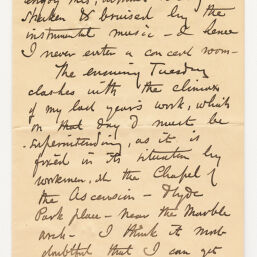 enjoy this,
shaken & bruised by the
instrumental music – & hence
I never enter a concert room –
The ensuing Tuesday
clashes with the climax
of my last year's work, which
on that day I must be
superintending, as it is
fixed in its situation by
workmen, at the Chapel of
the Ascension – Hyde
Park place – near the Marble
arch – I think it most
doubtful that I can get